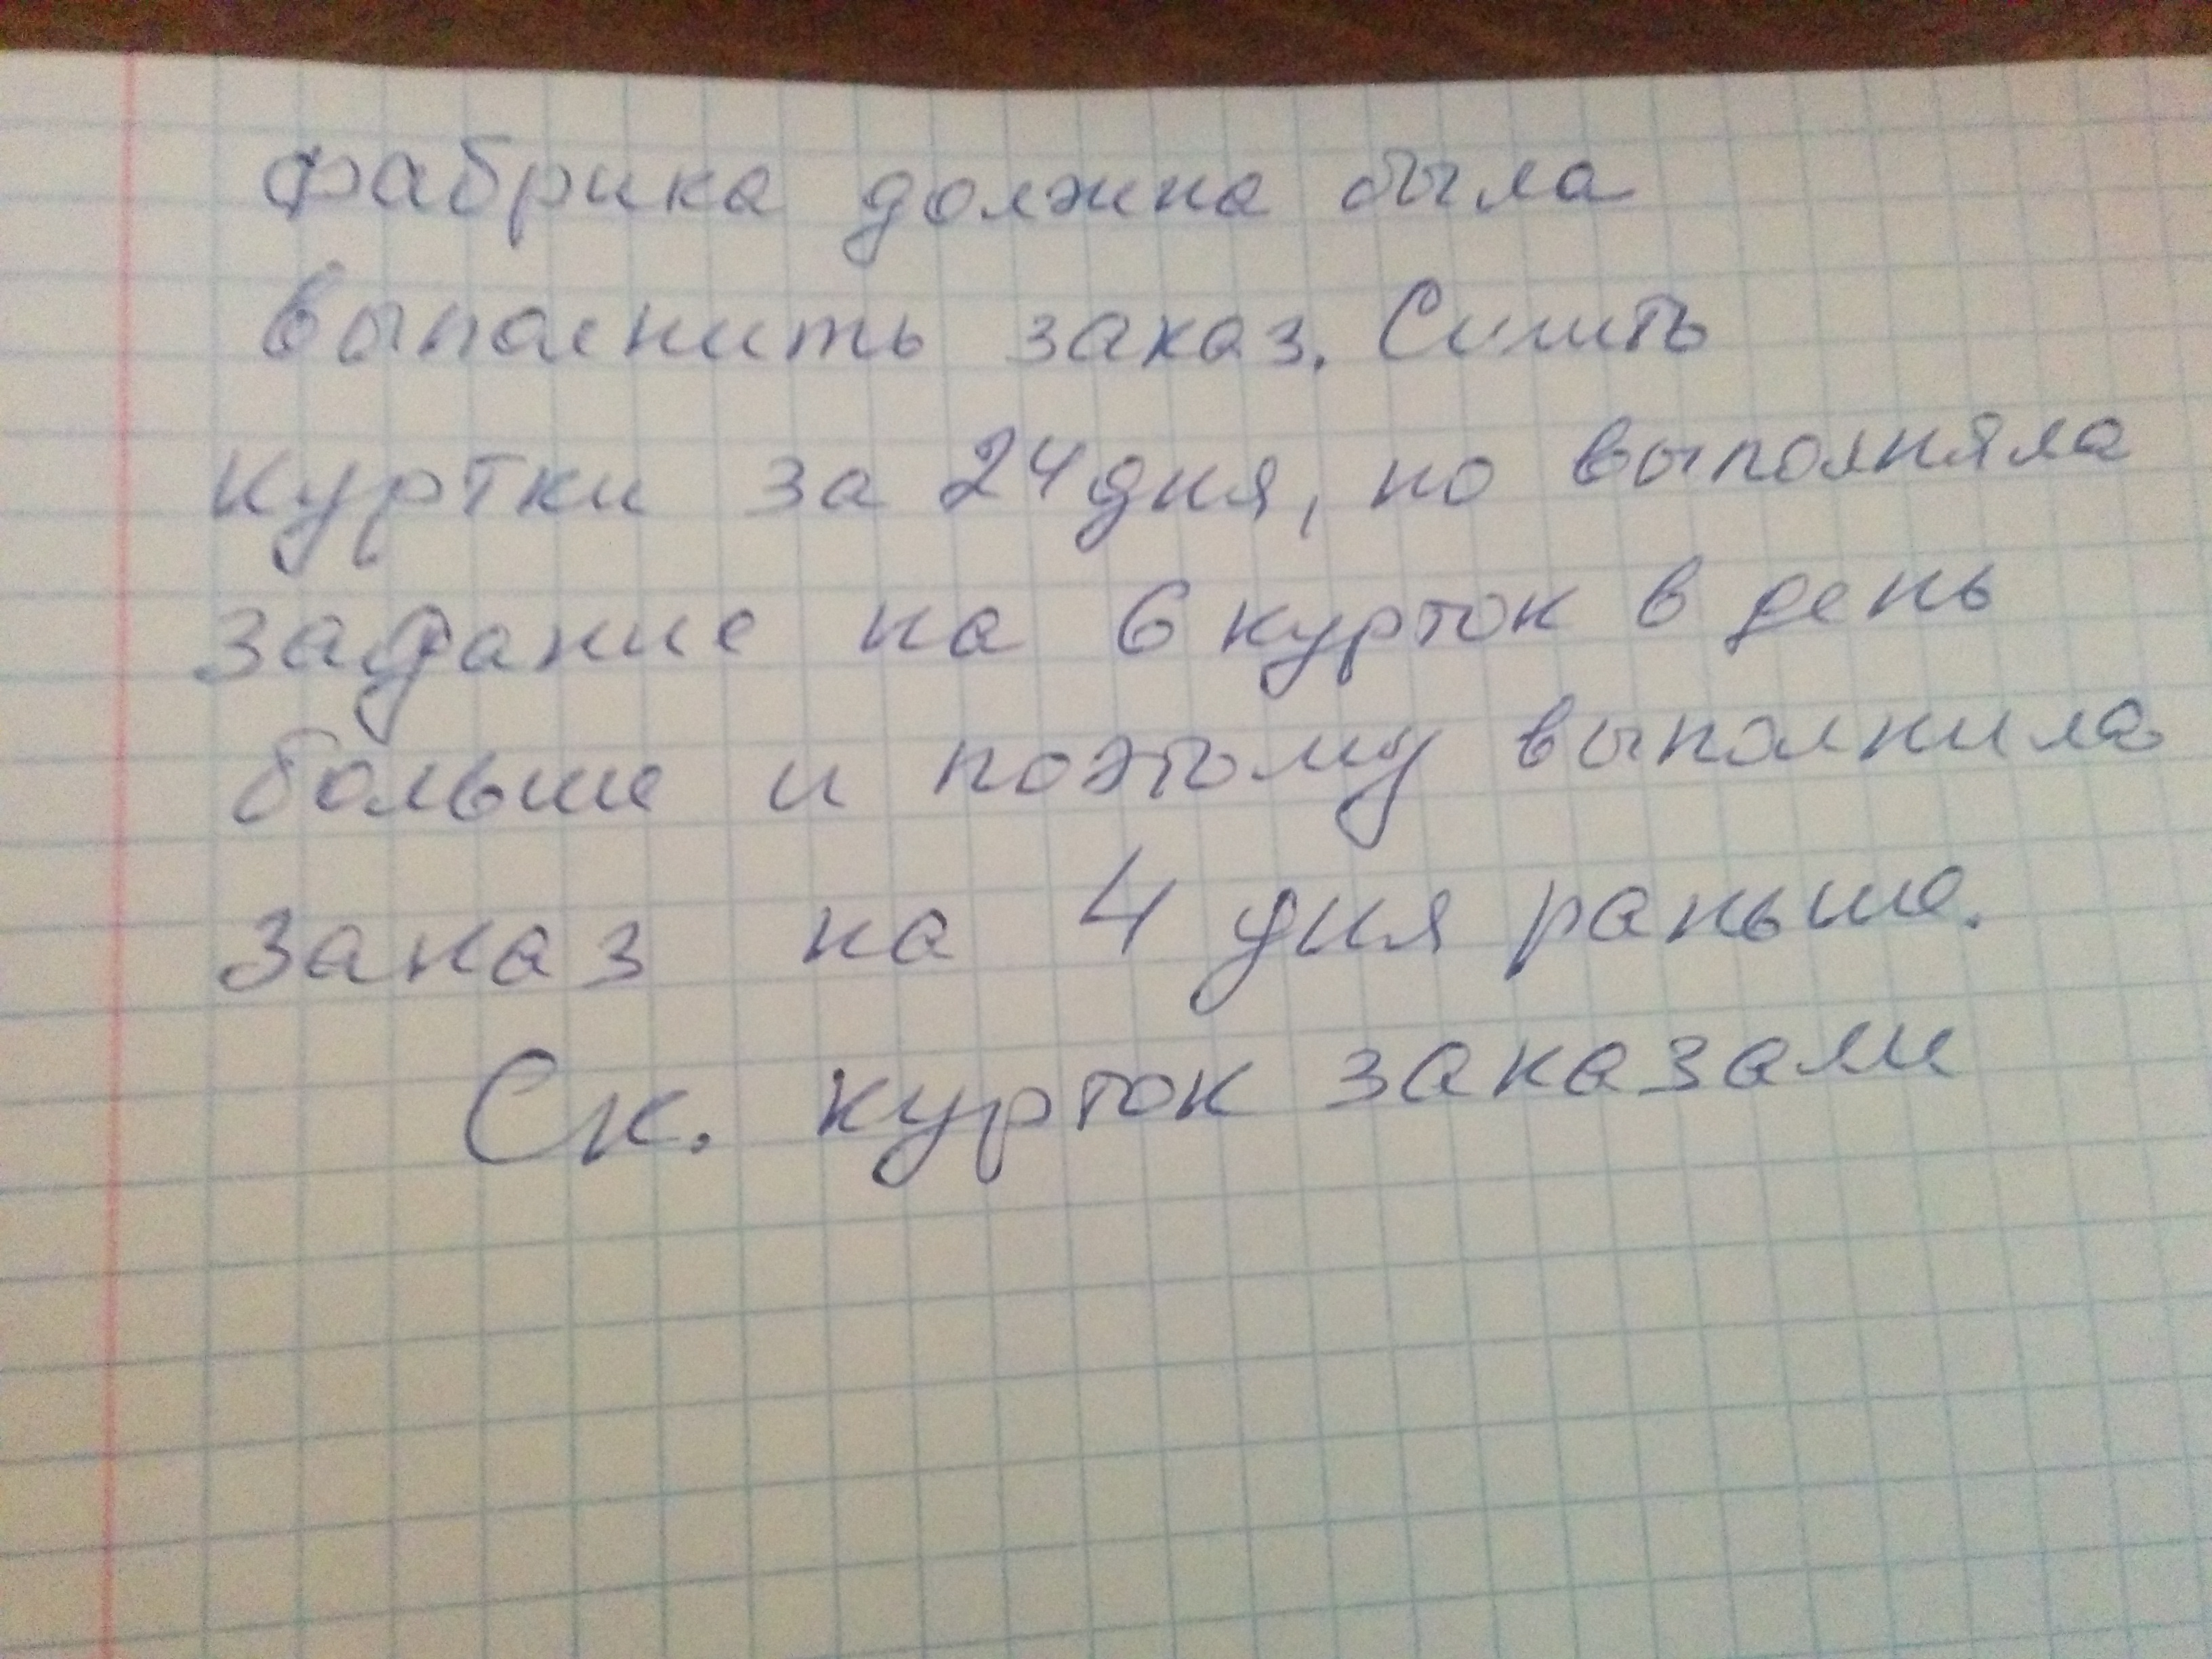 фабрика должна была
выполнить заказ. Сшить
куртки за 24 дня, но выполняла
задание на 6 курток в день
больше и поэтому выполнила
заказ на 4 дня раньше.
Ск. курток заказали